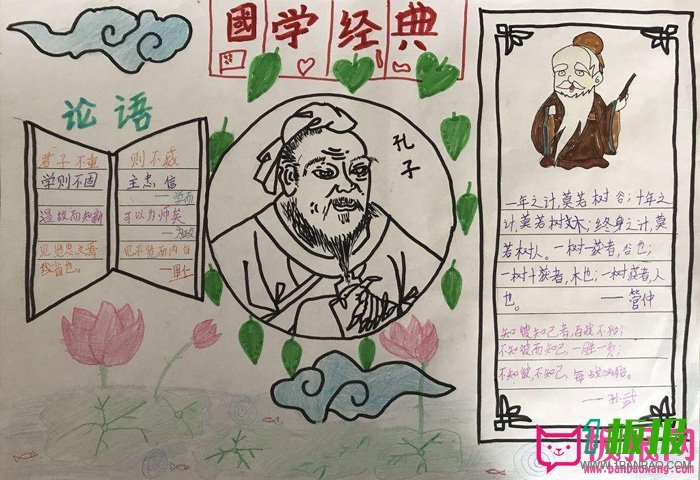 國学经典
论语
君子不重
则不威
学则不固
主忠信
—学而
温故而知新
可以为师矣
—为政
见贤思齐焉
见不贤而内自
省也。
—里仁
孔子
一年之计,莫若树谷;十年之
计,莫若树木;终身之计,莫
若树人。一树一获者,谷也;
一树十获者,木也;一树百获者,人
也。 ——管仲
知彼知己者,百战不殆;
不知彼而知己,一胜一负;
不知彼,不知己,每战必殆。
——孙武
板报网
www.1BANBAO.COM
www.banbaowang.com